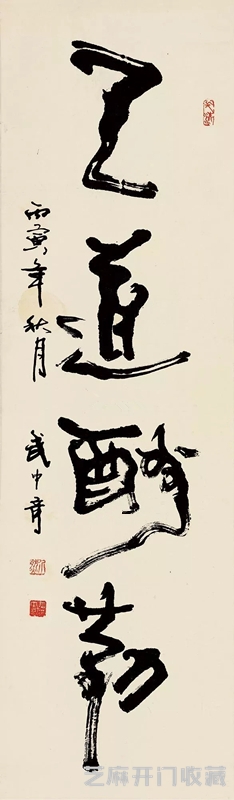 天道酬勤
丙寅年秋月 武中奇
芝麻开门收藏